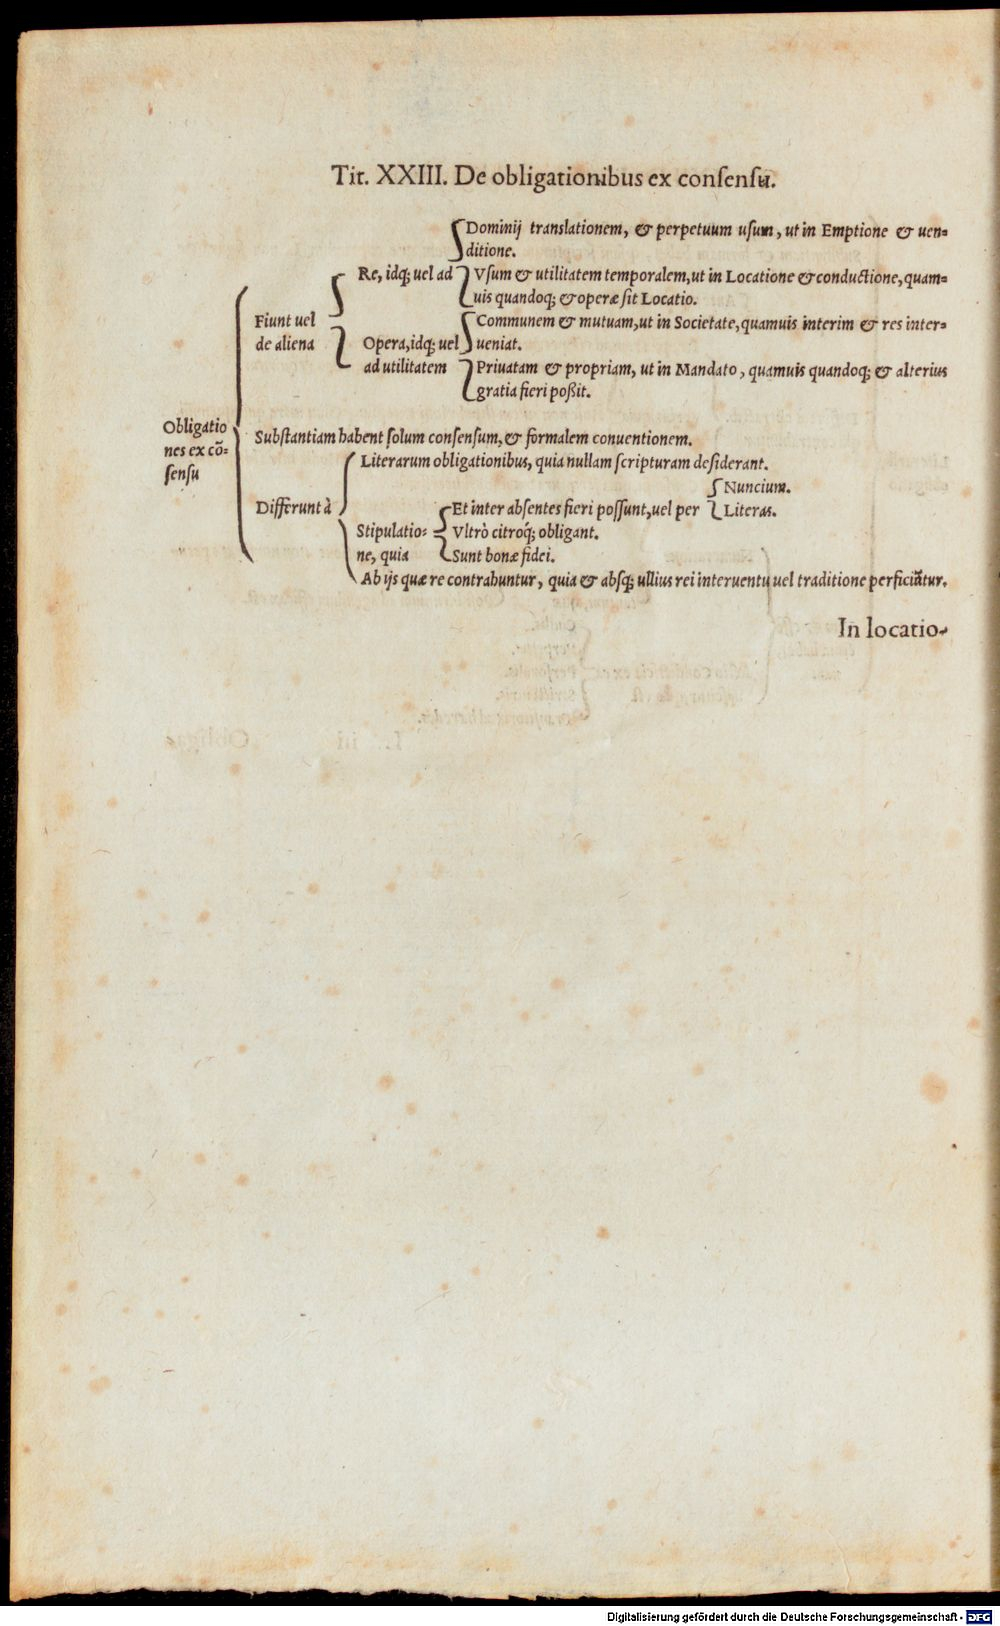 Tit. XXIII. De obligationibus ex consensu.
Dominij translationem, & perpetuum usum, ut in Emptione & uen=
ditione.
Re, idq; uel ad
Vsum & utilitatem temporalem, ut in Locatione & conductione, quam=
uis quandoq; & operæ sit Locatio.
Fiunt uel
de aliena
Communem & mutuam, ut in Societate, quamuis interim & res inter=
Opera, idq; uel
ueniat.
ad utilitatem
Priuatam & propriam, ut in Mandato, quamuis quandoq; & alterius
gratia fieri poßit.
Obligatio
nes ex cō=
sensu
Substantiam habent solum consensum, & formalem conuentionem.
Literarum obligationibus, quia nullam scripturam desiderant.
Differunt à
Nuncium.
Et inter absentes fieri possunt, uel per
Literas.
Stipulatio=
ne, quia
Vltrò citroq́; obligant.
Sunt bonæ fidei.
Ab ijs quæ re contrahuntur, quia & absq; ullius rei interuentu uel traditione perficiūtur.
In locatio-
Digitalisierung gefördert durch die Deutsche Forschungsgemeinschaft - DFG